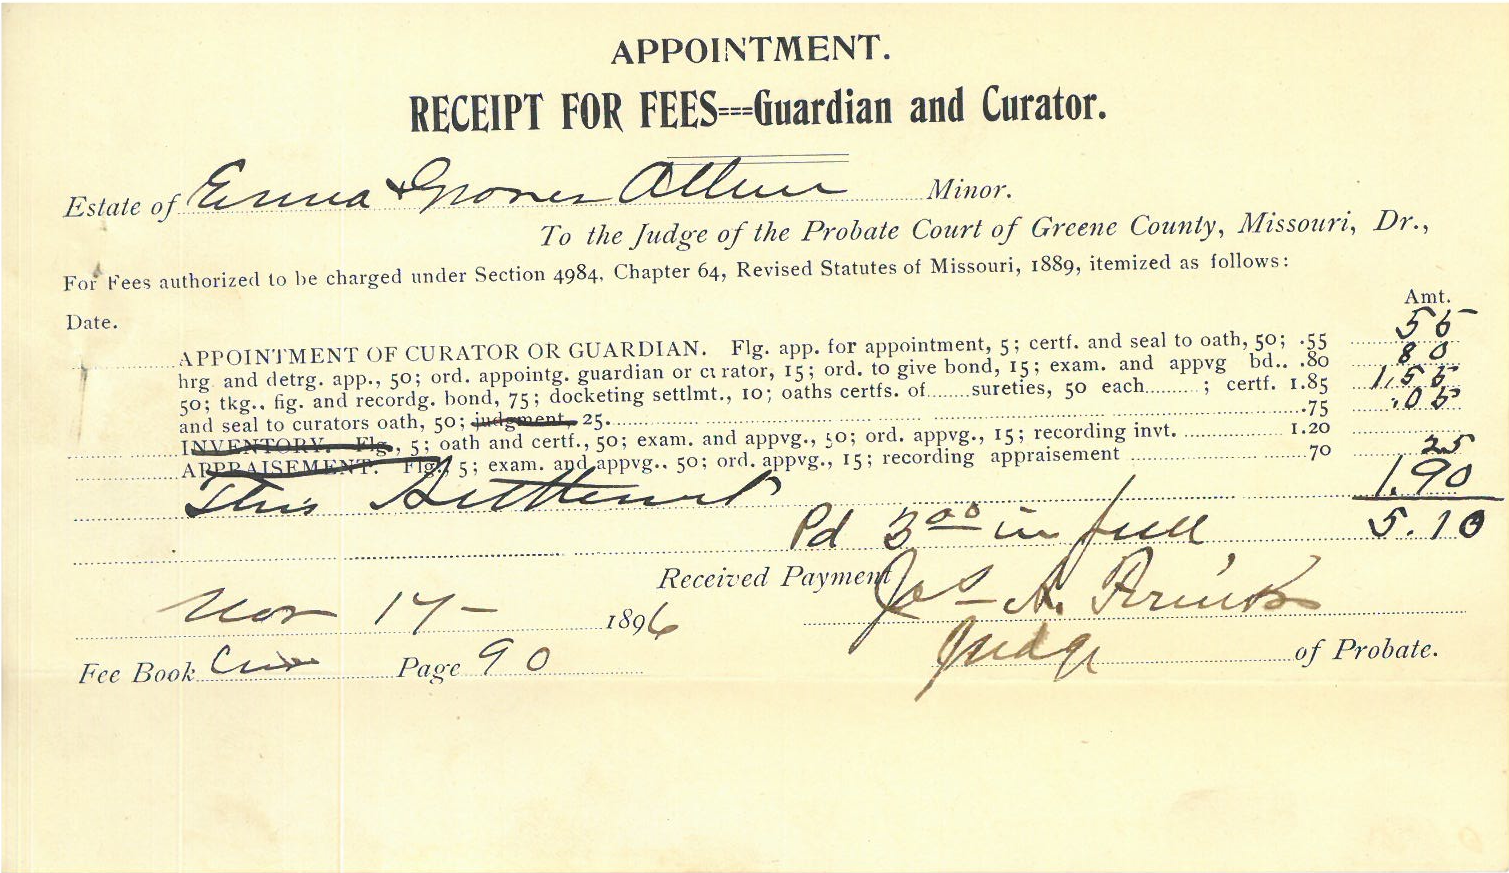 APPOINTMENT.
RECEIPT FOR FEES===Guardian and Curator.
Estate of Emma & Grover Allen Minor.
To the Judge of the Probate Court of Greene County, Missouri, Dr.,
For Fees authorized to be charged under Section 4984, Chapter 64, Revised Statutes of Missouri, 1889, itemized as follows:
Amt.
Date.
APPOINTMENT OF CURATOR OR GUARDIAN. Flg. app. for appointment, 5; certf. and seal to oath, 50; .55 55
hrg and detrg. app., 50; ord. appointg. guardian or curator, 15; ord. to give bond, 15; exam. and appvg bd.. .80 80
50; tkg., fig. and recordg. bond, 75; docketing settlmt., 10; oaths certfs. of......sureties, 50 each......; certf. 1.85 1,55
and seal to curators oath, 50; judgment, 25. .75 .05
INVENTORY. Flg., 5; oath and certf., 50; exam. and appvg., 50; ord. appvg., 15; recording invt. 1.20
APPRAISEMENT. Flg., 5; exam. and appvg.. 50; ord. appvg., 15; recording appraisement 70 25
This Settlement 1.90
Pd 3 00 in full 5.10
Received Payment Jos A.
Nov 17- 1896
Judge of Probate.
Fee Book Page 90